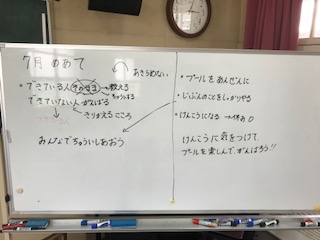 7月 めあて
あきらめない
・できている人 そのまま → 教える
ちゅういする
できていない人 がんばる
きりかえる こころ
みんなでちゅういしあおう
・プールをあんぜんに
・じぶんのことをしっかりやる
・けんこうになる → 休み0
けんこうに気をつけて、
プールを楽しんで、がんばろう!!